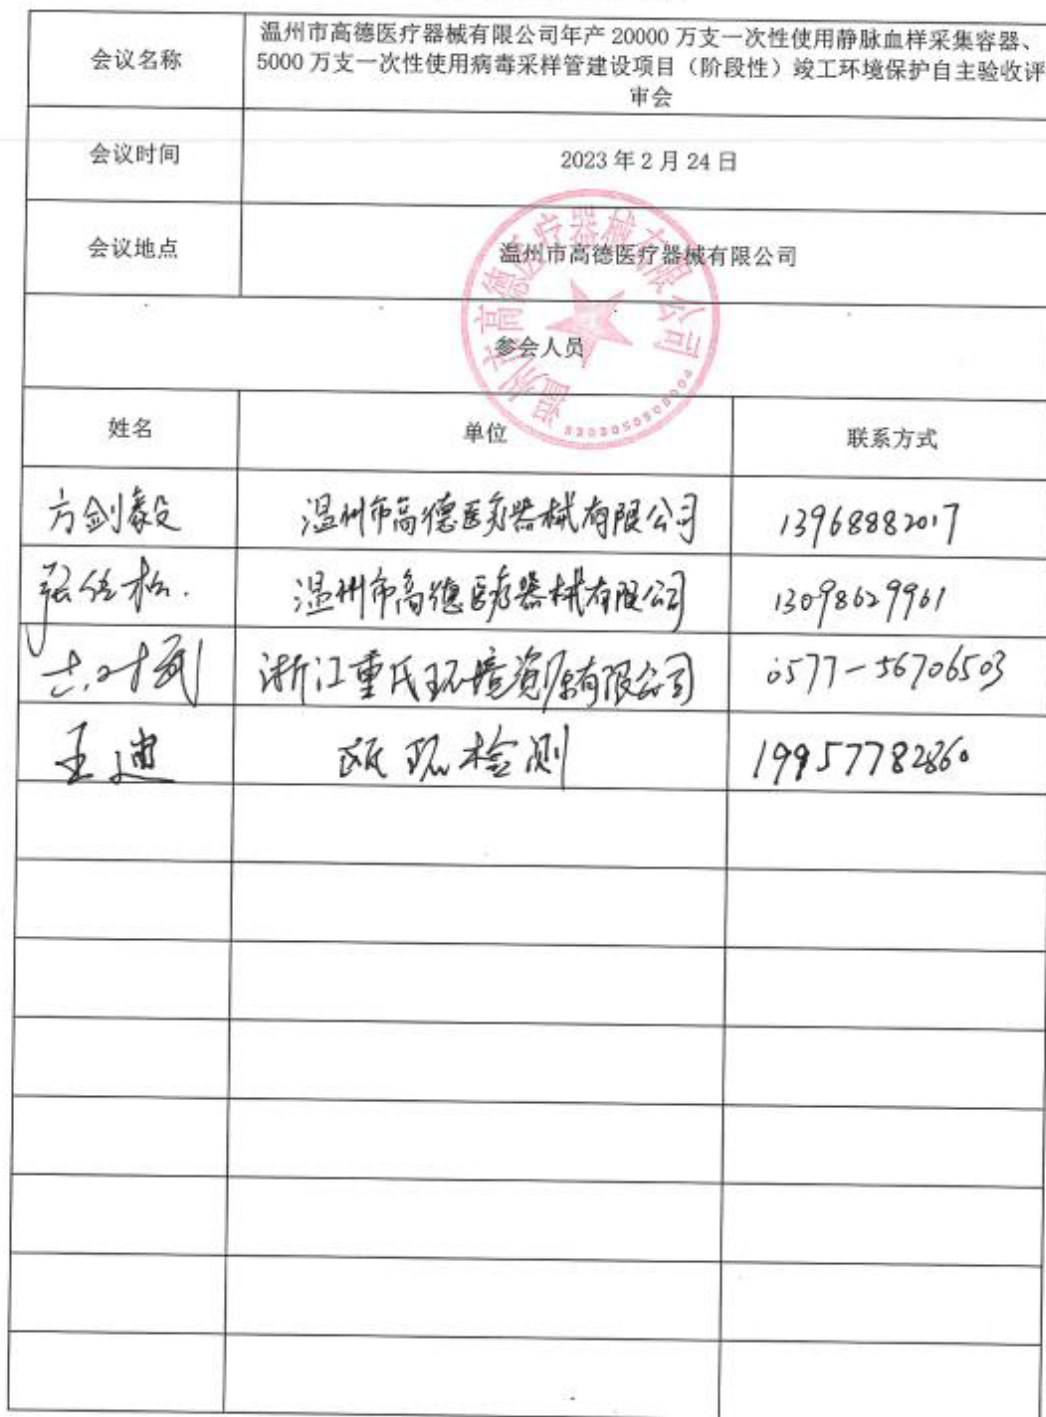 会议名称
温州市高德医疗器械有限公司年产 20000 万支一次性使用静脉血样采集容器、
5000 万支一次性使用病毒采样管建设项目（阶段性）竣工环境保护自主验收评
审会
会议时间
2023 年 2 月 24 日
会议地点
温州市高德医疗器械有限公司
温州市高德医疗器械有限公司
参会人员
姓名 单位 联系方式
方剑毅 温州市高德医疗器械有限公司 13968882017
张 温州市高德医疗器械有限公司 13098629961
浙江重氏环境资源有限公司 0577-56706503
王迪 瓯环检测 19957782860